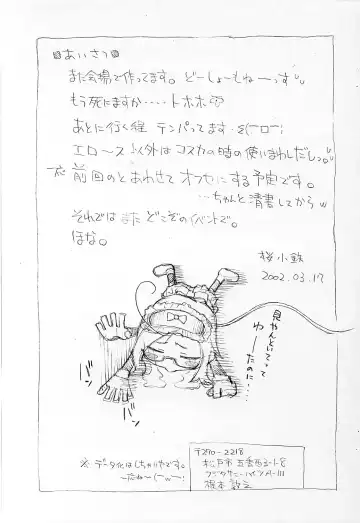 あいさつ
また会場で作ってます。どーしょーもねーっす
もう死にますか・・・・トホホ♡
あとに行く程 テンパってます
エロース以外はコスカの時の使いまわしだしっ。
一応 前回のとあわせて オフセにする予定です。
・・・ちゃんと清書してから
それでは また どこぞのイベントで。
ほな。
桜小鉄
2002.03.17
見やんといてって
ゆーたのに・・・
バン
バン
※データ化はしちゃいやです。
〒270-2218
松戸市五香西3-1-8